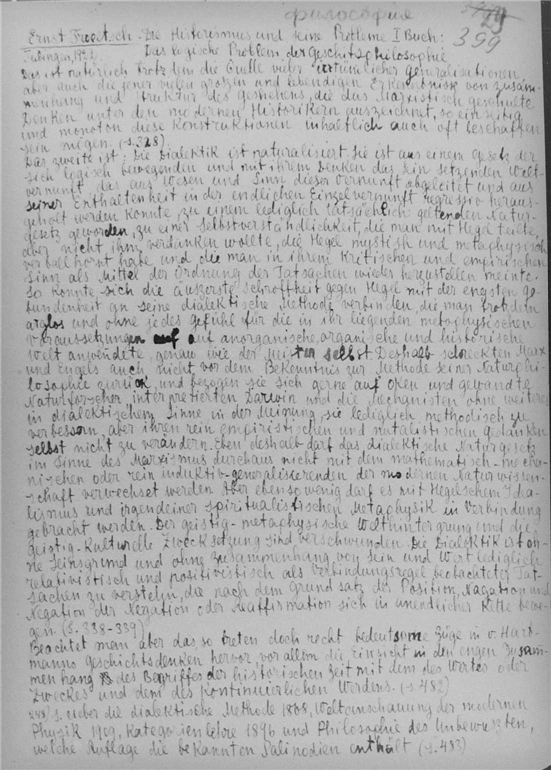 философия
29
399
Ernst Troeltsch: Die Historismus und seine Probleme I Buch:
Tübingen, 1922 Das logische Problem der Geschitzphilosophie
Das ist natürlich trotzdem die Quelle vieler Verallgemeinerungen Generalisationen
aber auch die jener vielen großen und lebendigen Erkenntnisse von zusam-
menhang und Struktur des Geschehens, die das Marxistisch geschulte
Denken unter den modernen Historikern auszeichnet, so einseitig
und monoton diese Konstruktionen inhaltlich auch oft beschaffen
sein mögen. (s. 328)
Das zweite ist: Die Dialektik ist naturalisiert. Sie ist aus einem Gesetz der
sich logisch bewegenden und mit ihrem Denken das Sein setzenden Welt-
vernunft, das aus Wesen und Sinn dieser Vernunft abgeleitet und aus
seiner Enthaltenheit in der endlichen Einzelvernunft regressiv heraus-
geholt werden konnte, zu einem lediglich tatsächlich geltenden Natur-
gesetz geworden, zu einer Selbstverständlichkeit, die man mit Hegel teilte,
aber nicht ihm verdanken wollte, die Hegel mystish und metaphysisch
verballhornt habe und die man in ihrem kritischen und empirischen
Sinn als Mittel der Ordnung der Tatsachen wieder herzustellen meinte.
So konnte sich die äußerste Schroffheit gegen Hegel mit der engsten Ge-
bundenheit an seine dialektische Methode verbinden, die man trotzdem
arglos und ohne jedes Gefühl für die in ihr liegenden metaphysischen
Voraussetzungen auf anorganische, organische und historische
Welt anwendete, genau wie der Meister selbst. Deshalb schreckten Marx
und Engels auch nicht vor dem Bekenntnis zur Methode seiner Naturphi-
losophie zurück und bezogen sie sich gerne auf Oken und gewandte
Naturforscher interpretierten Darwin und die Mechanisten ohne weiteres
in dialektischem Sinne in der Meinung, sie lediglich methodisch zu
verbessern, aber ihren rein empiristischen und natalistischen Gedanken
selbst nicht zu verändern. Eben deshalb darf das dialektische Naturgesetz
im Sinne des Marxismus durchaus nicht mit dem mathematisch-mecha-
nischen oder rein induktiv-generalisierenden der modernen Naturwissen-
schaft verwechset werden. Aber ebensowenig darf es mit Hegelschem Idea-
lismus und irgendeiner spiritualistischen Metaphysik in Verbindung
gebracht werden. Der geistig-metaphysische Welthintergrund und die
geistig-kulturelle Zwecksetzung sind verschwunden. Die Dialektik ist oh-
ne Seinsgrund und ohne Zusammenhang von Sein und Wert lediglich
relativistisch und positivistisch als Verbindungsregel beobachteter Tat-
sachen zu verstehn, die nach dem Grundsatz der Position, Nagation und
Negation der Negation oder Reaffirmation sich in unendlicher Kette bewe-
gen. (s. 338-339)
Beachtet man aber das, so treten doch recht bedeutsame Züge in v. Hart-
manns Geschichtsdenken hervor, vor allem die Einsicht in den engen Zusam-
menhang des Begriffes der historischen Zeit mit dem des Wertes oder
Zweckes und dem des Kontinuierlichen Werdens. (s. 482)
s. Ueber die dialektische Methode 1868, Weltanschauung der modernen
Physik 1909, Kategorienlehre 1896 und Philosophie des Unbewußten,
welche Auflage die bekannten Palinodien enthält (s. 483)